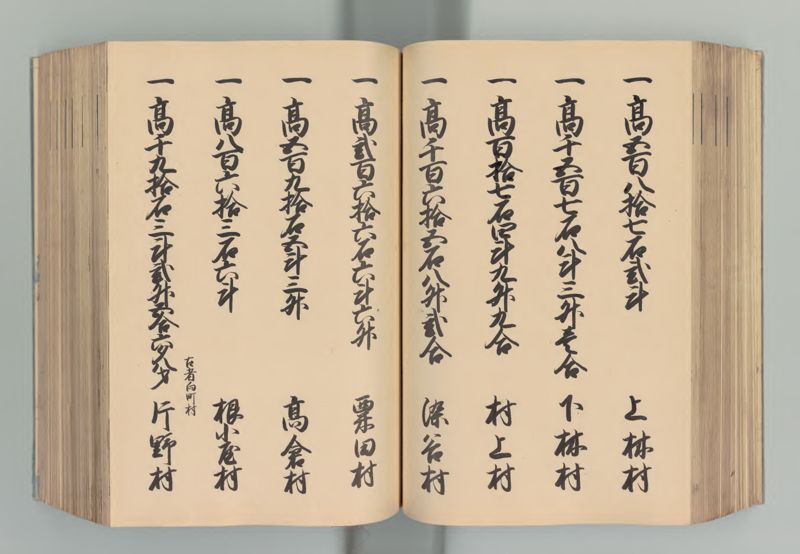 一高五百八拾七石弐斗 上林村
一高千五百七石八斗三升壱合 下林村
一高百拾七石四斗九升九合 村上村
一高千百六拾五石八升弐合 染谷村
一高弐百六拾六石六斗六升 粟田村
一高五百九拾石五斗三升 高倉村
一高八百六拾三石六斗 根小屋村
古者向町村
一高千九拾石三斗弐升五合六夕八才 片野村